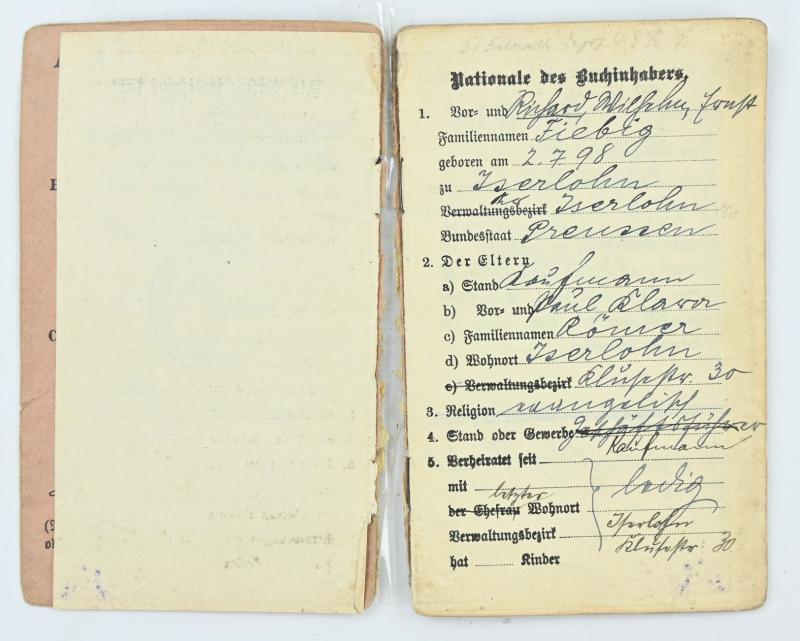 Nationale des Buchinhabers,
1. Vor- und Richard, Wilhelm, Ernst
Familiennamen Fiebig
geboren am 2.7.98
zu Iserlohn
Verwaltungsbezirk Iserlohn
Bundesstaat Preussen
2. Der Eltern
a) Stand Kaufmann
b) Vor- und Paul Klara
c) Familiennamen Römer
d) Wohnort Iserlohn
e) Verwaltungsbezirk Klusestr. 30
3. Religion evangelisch
4. Stand oder Gewerbe Geschäftsführer
Kaufmann
5. Verheiratet seit
mit ledig
letzter
der Ehefrau Wohnort Iserlohn
Verwaltungsbezirk Klusestr. 30
hat Kinder